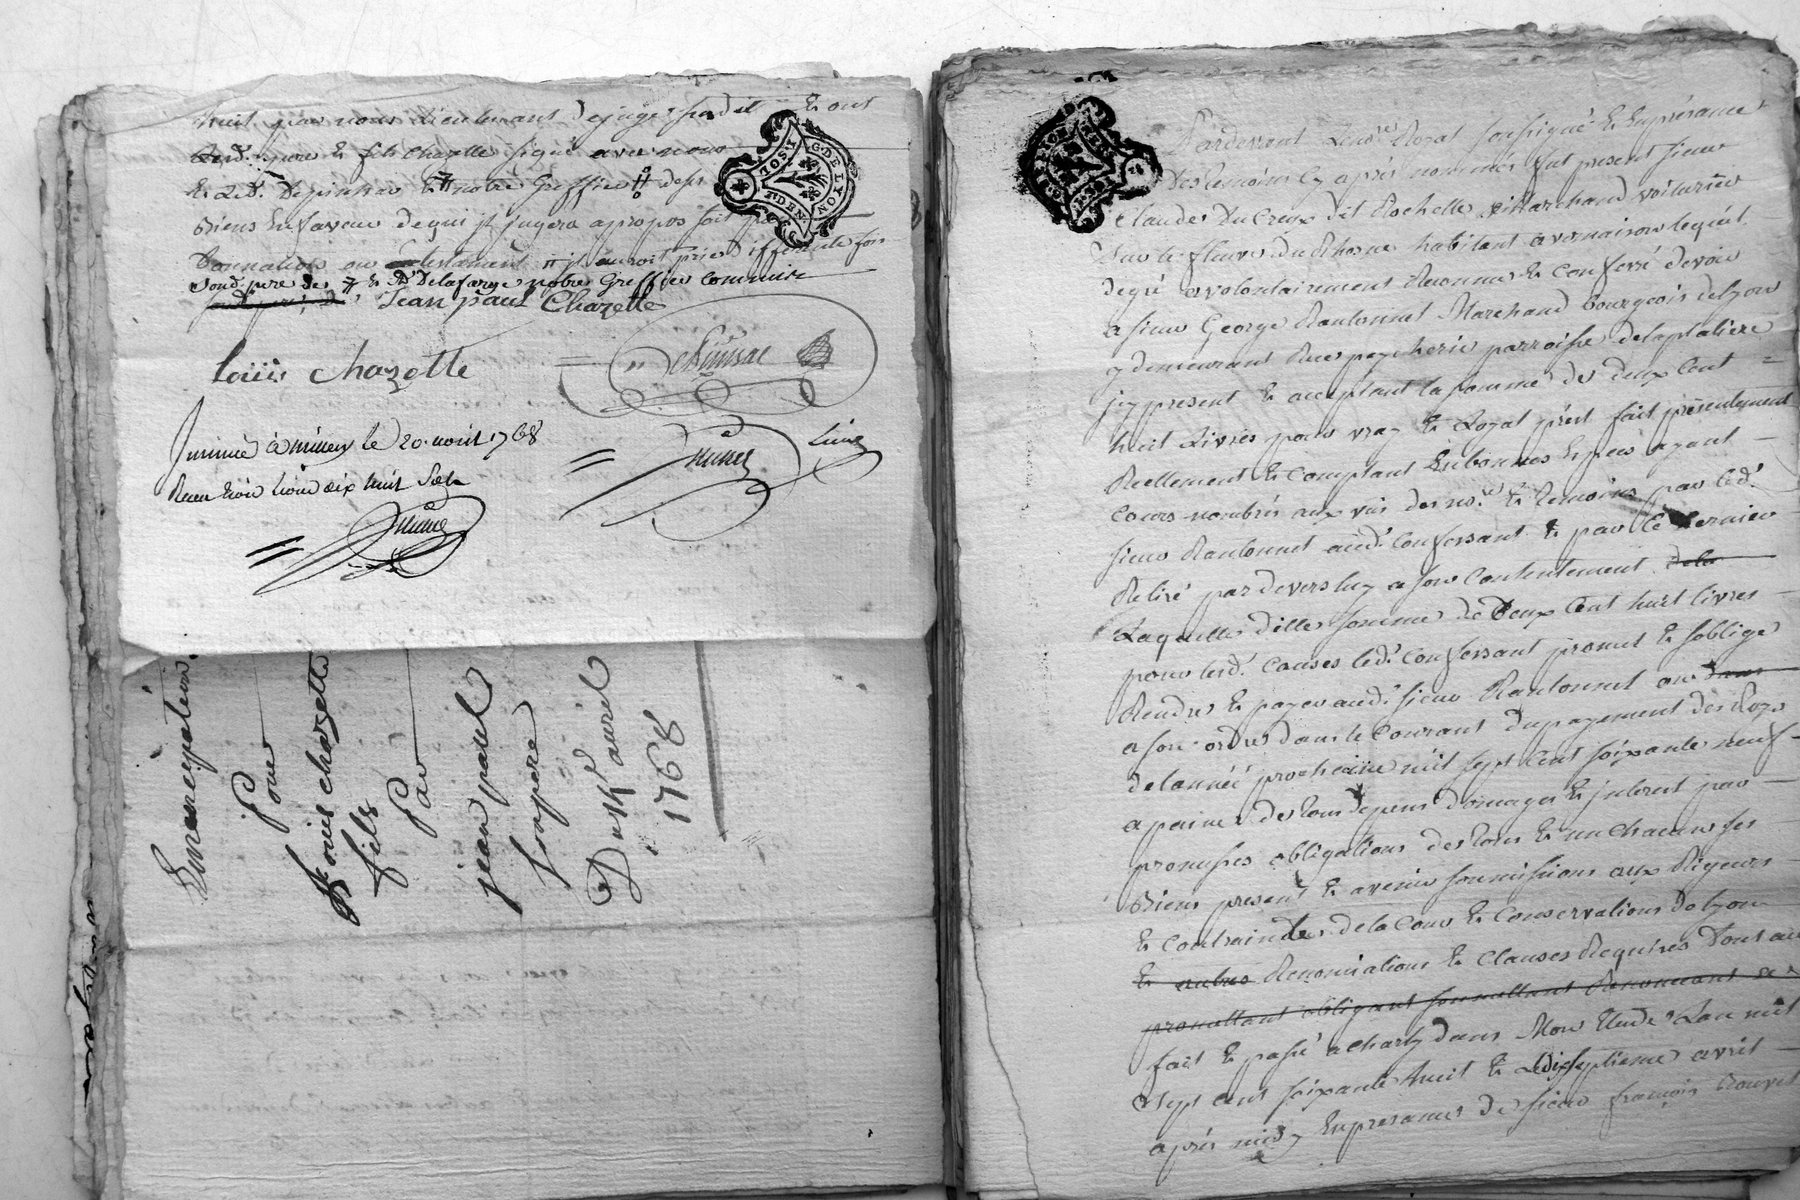 huit par nous Lieutenant de juge susdit et ont
lesd. pere et fils Chazette signé avec nous
et notre Greffier
Biens en faveur de qui jl jugera a propos soit
Donnation ou testament
Sond. pere des et Delafarge notre Greffier Commis
Jean paul Chazette
Louis chazette
G. DE LYON
Jnsinué à le 20 1768
Recu trois livres dix huit Sols
Emencipation
Pour
Louis chazette
fils
Par
jean paul
son pere
Du avril
1768
Pardevant Le no.re Royal soussigné et En présance
Des temoins cy après nommés fut present sieur
Claude Du Creux dit Rochelle Marchand voiturier
Sur le fleuve du Rhosne habitant a vernaison lequel
de gré a volontairement Reconnu et Confessé devoir
a sieur George Rantonnet Marchand bourgeois de lyon
y demeurant Rue pecherie parroisse de la platiere
jcy present et acceptant la somme de deux Cent
huit Livres pour vray et Loyal prest fait présentement
Reellement et Comptant En bonnes Especes ayant
Cours nombrés aux vûe des no.re et temoins par led.
sieur Rantonnet aud. Confessant et par Ce dernier
Retiré par devers luy a son Contentement de la
Laquelle ditte somme de Deux Cent huit livres
pour lesd. Causes led. Confessant promet et s'oblige
Rendre et payer aud. sieur Rantonnet ou dans
a son ordre dans le Courant du payement des Roys
de l'année prochaine mil sept Cent soixante neuf
a peine de tous depens domages et jnterest par
promesses obligations de tous et un chacuns ses
Biens present et avenir soumissions aux Rigeurs
et Contraintes de la Cour et Conservations de lyon
et autres Renonciations et Clauses Requises Dont acte
promettant obligeant soumettant Renonçant &c
fait et passé a Charly dans Mon Etude L'an mil
sept cent soixante huit et Le dixseptieme avril
après midy En presance de sieur françois Bouvet